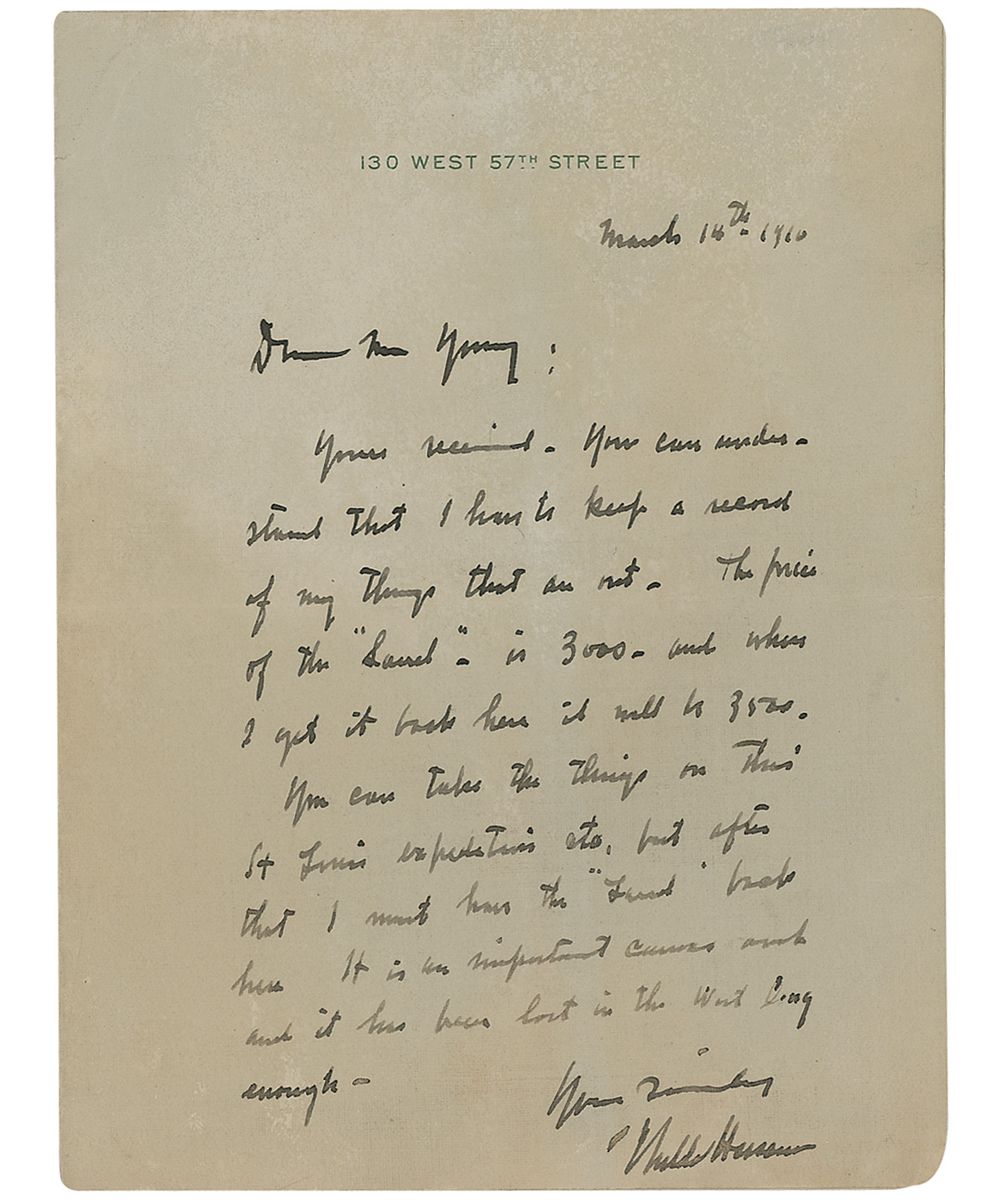 130 WEST 57TH STREET
March 18th 1910
Dear Mr Young:
Yours received - You can under-
stand that I have to keep a record
of my things that are out - The price
of the "Laurel" - is 3000 - and when
I get it back here it will be 3500.
You can take the things on this
St Louis expedition etc, but after
that I must have the "Laurel" back
here It is an important canvas and
and it has been lost in the West long
enough -
Yours Sincerely
Childe Hassam